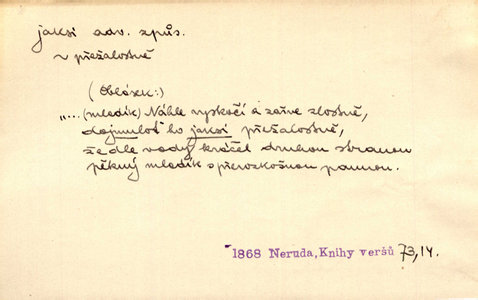 jaksi adv. způs.
v přežalostně
(Oblázek:)
„... (mladík) Náhle vyskočí a zařve zlostně,
dojmulot' ho jaksi přežalostně,
že dle vody kráčel druhou stranou
pěkný mladík s přerozkošnou pannou.
1868 Neruda, Knihy veršů 73,14.